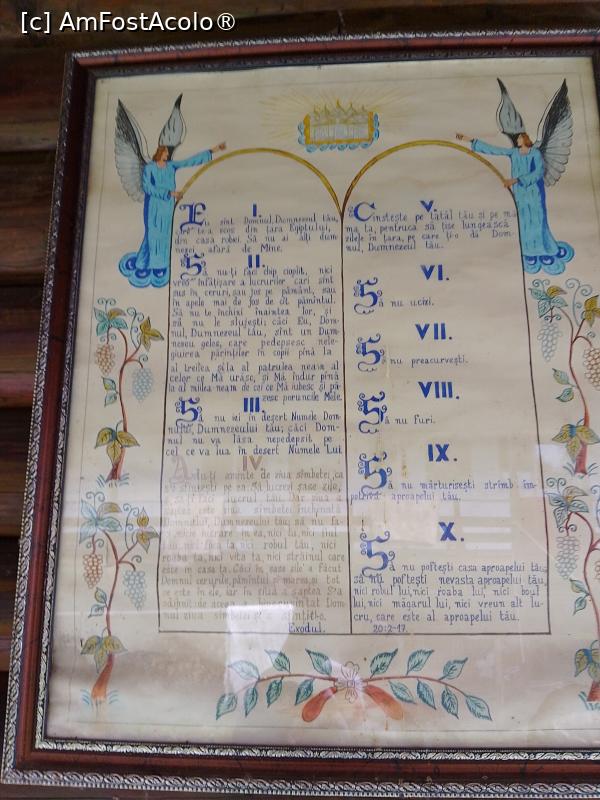 [c] AmFostAcolo®
I.
Eu sînt Domnul, Dumnezeul tău,
te-a scos din ţara Egiptului,
din casa robiei. Să nu ai alţi dum-
nezei afară de Mine.
II.
Să nu-ţi faci chip cioplit, nici
vreo înfăţişare a lucrurilor cari sînt
sus în ceruri, sau jos pe pămînt, sau
în apele mai de jos de cît pămîntul.
Să nu te închini înaintea lor, şi
să nu le slujeşti; căci Eu, Dom-
nul, Dumnezeul tău, sînt un Dum-
nezeu gelos, care pedepsesc nele-
giuirea părinţilor în copii pînă la
al treilea şi la al patrulea neam al
celor ce Mă urăsc, şi Mă îndur pînă
la al miilea neam de cei ce Mă iubesc şi pă-
zesc poruncile Mele.
III.
Să nu iei în deşert Numele Dom-
nului, Dumnezeului tău; căci Dom-
nul nu va lăsa nepedepsit pe
cel ce va lua în deşert Numele Lui.
IV.
Adu-ţi aminte de ziua sîmbetei, ca
s-o sfinţeşti pe ea. Să lucrezi şase zile,
şi să-ţi faci lucrul tău. Dar ziua a
şaptea este sîmbetei închinată
Domnului, Dumnezeului tău; să nu fa-
ci nici o lucrare în ea, nici tu, nici fiul
tău, nici fiica ta, nici robul tău, nici
roaba ta, nici vita ta, nici străinul care
este în casa ta. Căci în şase zile a făcut
Domnul cerurile, pămîntul şi marea, şi tot
ce este în ele, iar în ziua a şaptea S-a
odihnit: de aceea Dom-
nul ziua sîmbetei şi a sfinţit-o.
Exodul.
V.
Cinsteşte pe tatăl tău şi pe ma
ma ta, pentruca să ţise lungească
zilele în ţara, pe care ţi-o dă Dom-
nul, Dumnezeul tău.
VI.
Să nu ucizi.
VII.
Să nu preacurveşti.
VIII.
Să nu furi.
IX.
Să nu mărturiseşti strîmb îm-
potriva aproapelui tău.
X.
Să nu pofteşti casa aproapelui tău;
să nu pofteşti nevasta aproapelui tău,
nici robul lui, nici roaba lui, nici boul
lui, nici măgarul lui, nici vreun alt lu-
cru, care este al aproapelui tău.
20:2-17.